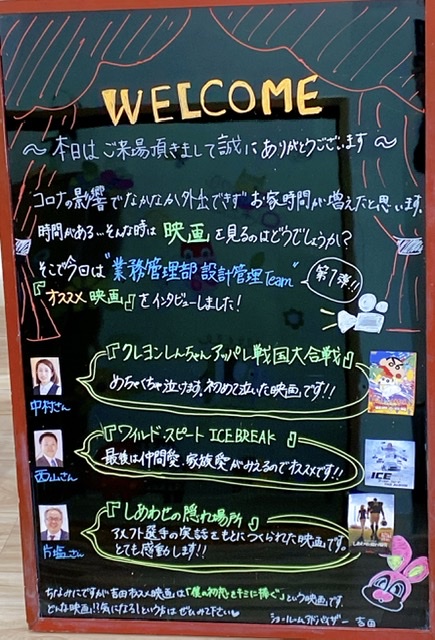 WELCOME
～本日はご来場頂きまして誠にありがとうございます～
コロナの影響でなかなか外出できずお家時間が増えたと思います。
時間がある…そんな時は映画を見るのはどうでしょうか？
そこで今回は"業務管理部設計管理Team"
第1弾!!
『オススメ映画』をインタビューしました！
『クレヨンしんちゃんアッパレ戦国大合戦』
めちゃくちゃ泣けます。初めて泣いた映画です!!
中村さん
『ワイルド・スピード ICE BREAK』
最後は仲間愛、家族愛がみえるのでオススメです!!
西山さん
ICE
『しあわせの隠れ場所』
アメフト選手の実話をもとにつくられた映画です。
とても感動します!!
片塩さん
ちなみにですが吉田オススメ映画は「僕の初恋をキミに捧ぐ」という映画です。
どんな映画!?気になる！という方はぜひみて下さい
ショールームアドバイザー 吉田